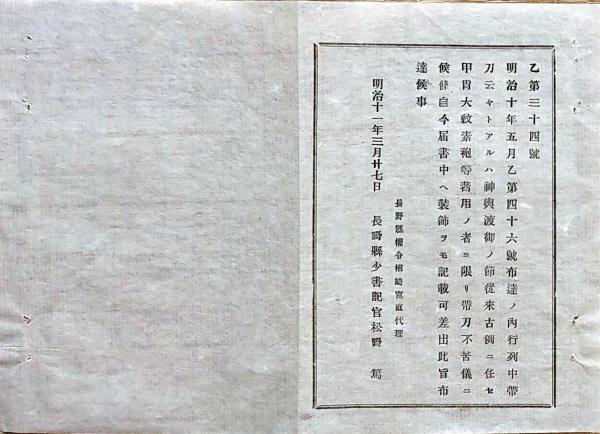 乙第三十四號
明治十年五月乙第四十六號布達ノ內行列中帶
刀云々トアルハ神輿渡御ノ節從來古例ニ任セ
甲冑大紋素袍等著用ノ者ニ限リ帶刀不苦儀ニ
候條自今届書中ヘ裝飾ヲモ記載可差出此旨布
達候事
明治十一年三月廿七日
長野縣權令楢崎寬直代理
長野縣少書記官松野 篤